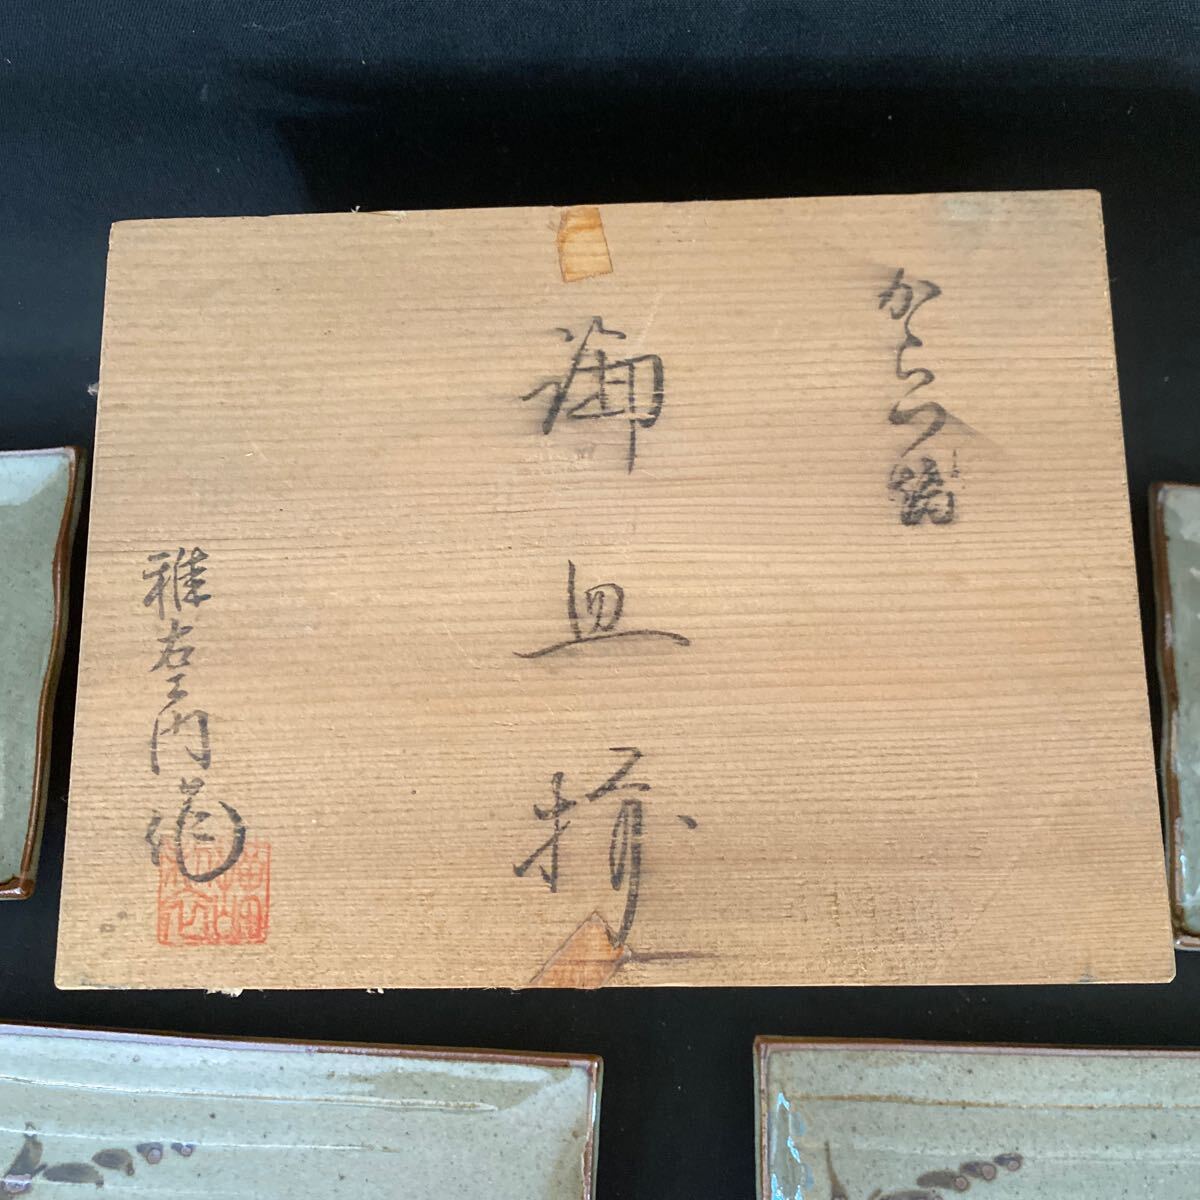 からつ焼
御皿揃
雅右エ門作